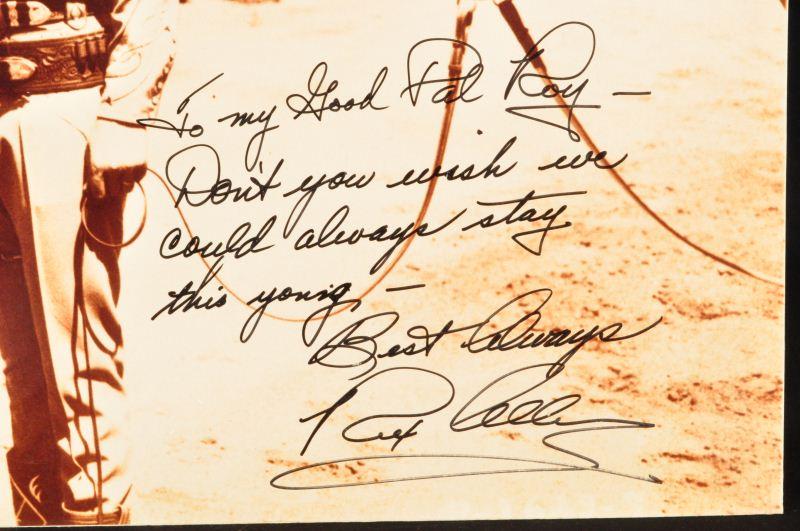 To my Good Pal Roy —
Don't you wish we
could always stay
this young, —
Best Always
Rex Allen